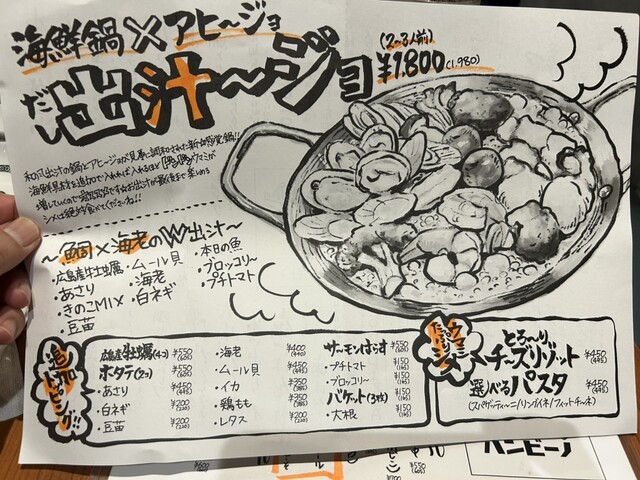 海鮮鍋×アヒ〜ジョ
だし
出汁〜ジョ
(2〜3人前)
¥1,800(1,980)
和風出汁の鍋とアヒージョが見事に調和された新感覚鍋!!
海鮮具材を追加で入れれば入れるほど
増していくので
シメは絶対食べてくださいね!!
〜鯛×海老のW出汁〜
・広島産牡蠣 ・ムール貝 ・本日の魚
・あさり ・海老 ・ブロッコリー
・きのこMIX ・白ネギ ・プチトマト
・豆苗
追加トッピング!!
広島産牡蠣(4コ) ¥550(605)
ホタテ(2コ) ¥550(605)
・あさり ¥450(495)
・白ネギ ¥200(220)
・豆苗 ¥200(220)
・海老 ¥400(440)
・ムール貝 ¥450(495)
・イカ ¥350(385)
・鶏もも ¥350(385)
・レタス ¥200(220)
サーモンはらす ¥550(605)
・プチトマト ¥150(165)
・ブロッコリー ¥150(165)
バゲット(3枚) ¥150(165)
・大根 ¥150(165)
とろ〜り
チーズリゾット ¥450(495)
選べるパスタ ¥450(495)
(スパゲッティーニ/リングイネ/フィットチーネ)
¥600
¥550